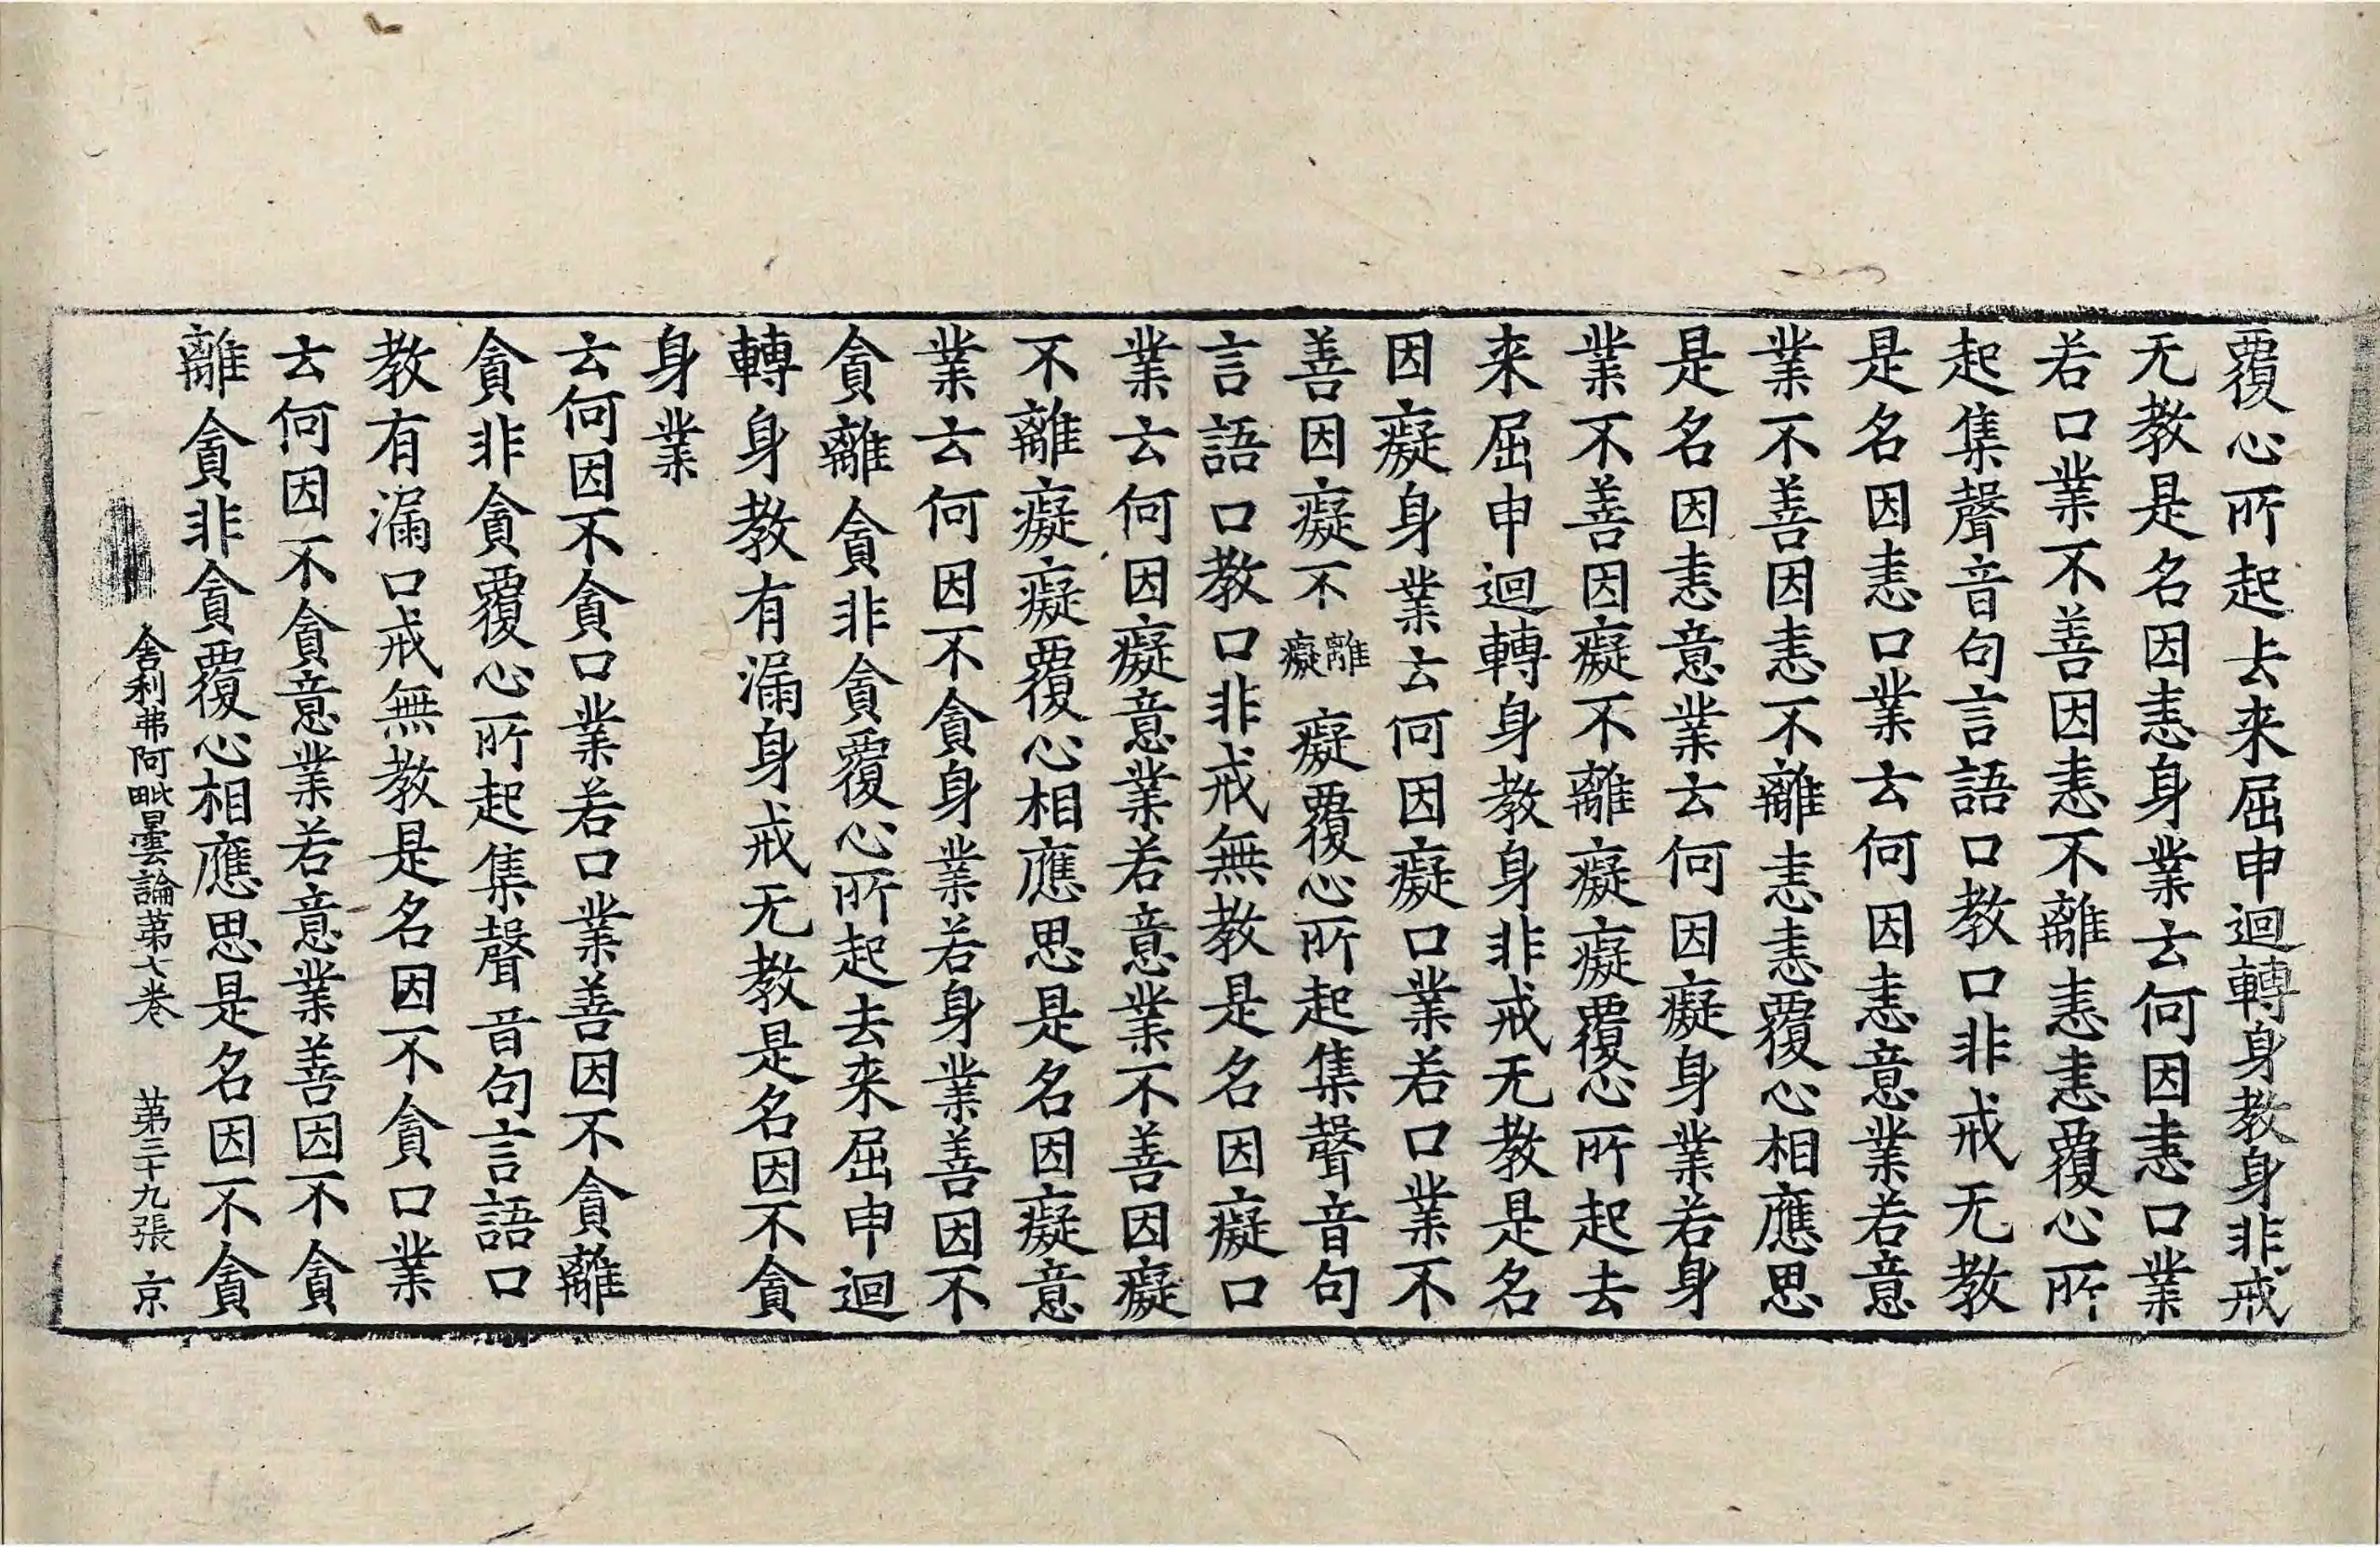 覆心所起去来屈申迴轉身教身非戒
无教是名因恚身業云何因恚口業
若口業不善因恚不離恚恚覆心所
起集聲音句言語口教口非戒无教
是名因恚口業云何因恚意業若意
業不善因恚不離恚恚覆心相應思
是名因恚意業云何因癡身業若身
業不善因癡不離癡癡覆心所起去
来屈申迴轉身教身非戒无教是名
因癡身業云何因癡口業若口業不
善因癡不離癡癡覆心所起集聲音句
言語口教口非戒無教是名因癡口
業云何因癡意業若意業不善因癡
不離癡癡覆心相應思是名因癡意
業云何因不貪身業若身業善因不
貪離貪非貪覆心所起去来屈申迴
轉身教有漏身戒无教是名因不貪
身業
云何因不貪口業若口業善因不貪離
貪非貪覆心所起集聲音句言語口
教有漏口戒無教是名因不貪口業
云何因不貪意業若意業善因不貪
離貪非貪覆心相應思是名因不貪
舍利弗阿毗曇論第七卷 第三十九張 京